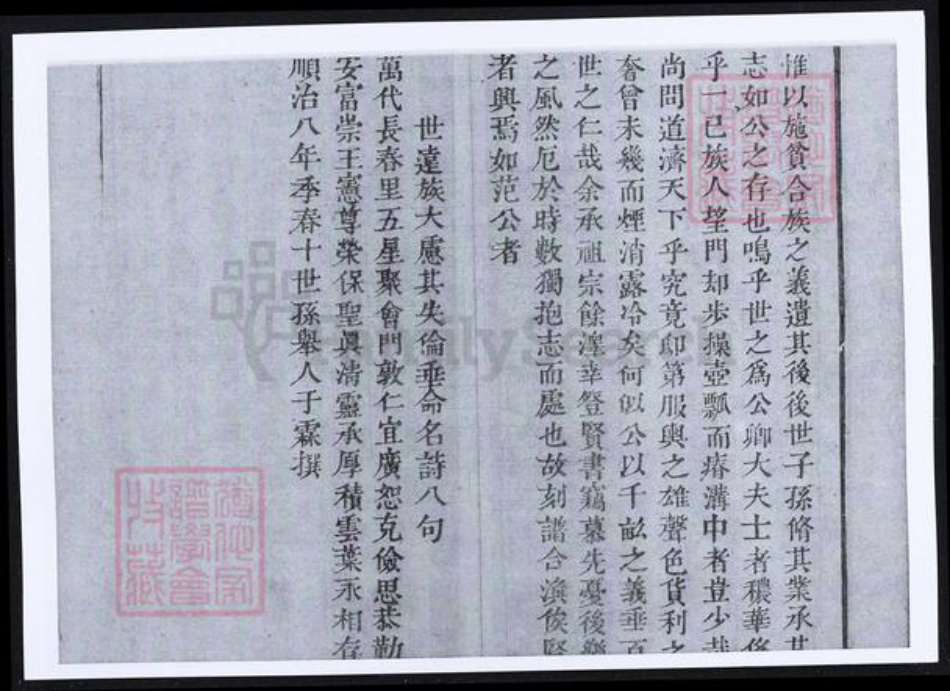 惟以施貧合族之義遺其後後世子孫脩其業承其
志如公之存也鳴乎世之爲公卿大夫士者穠華侈
乎一己族人望門却步操壺瓢而瘠溝中者豈少哉
尚問道濟天下乎究竟邸第服輿之雄聲色貨利之
奢曾未幾而煙消露冷矣何似公以千畝之義垂百
世之仁哉余承祖宗餘澤幸登賢書竊慕先憂後樂
之風然厄於時數獨抱志而處也故刻譜合渙俟賢
者興焉如范公者
世遠族大慮其失倫垂命名詩八句
萬代長春里五星聚會門敦仁宜廣恕克儉思恭勤
安富崇王憲尊榮保聖眞清靈承厚積雲葉永相存
順治八年季春十世孫舉人于霖撰
FamilySearch